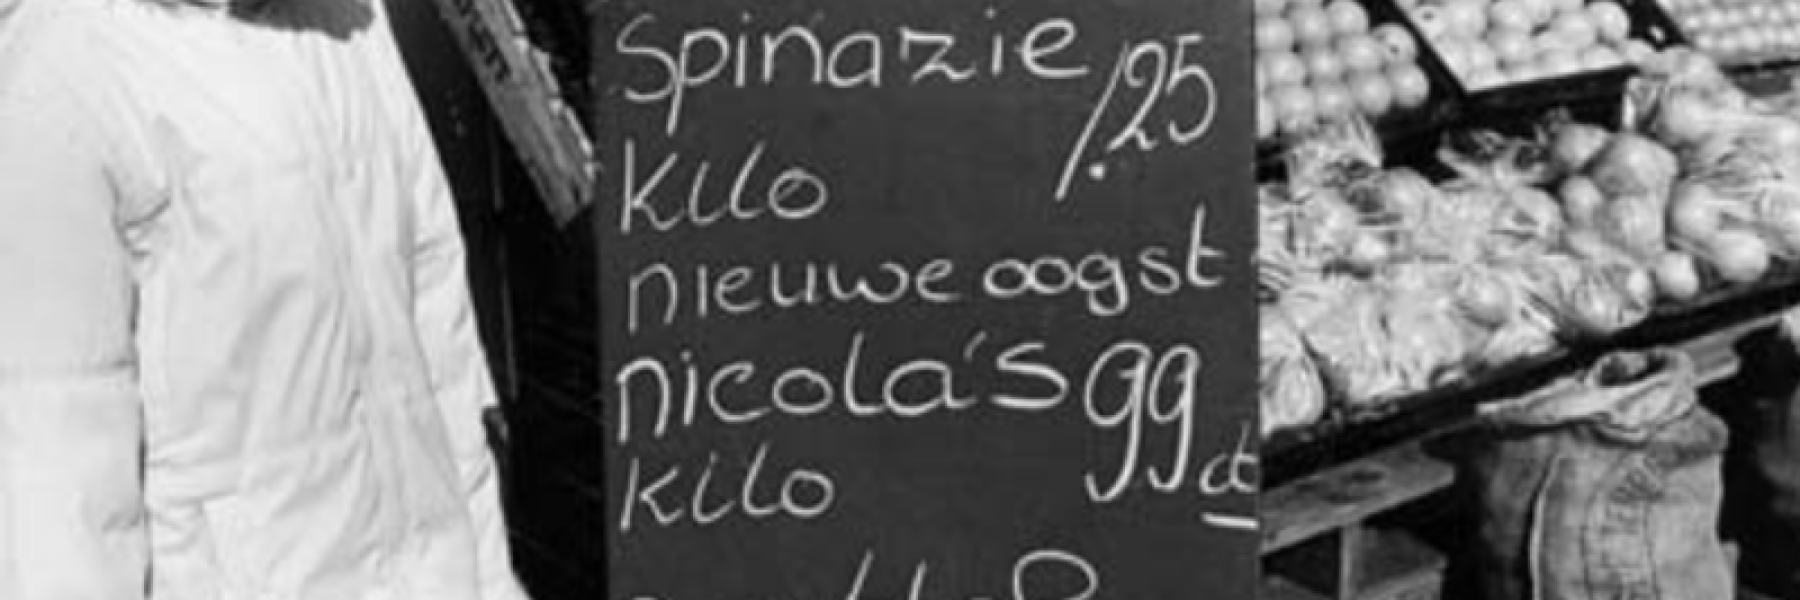 Spinazie 1.25
kilo
nieuwe oogst
nicola's 99 ct
kilo